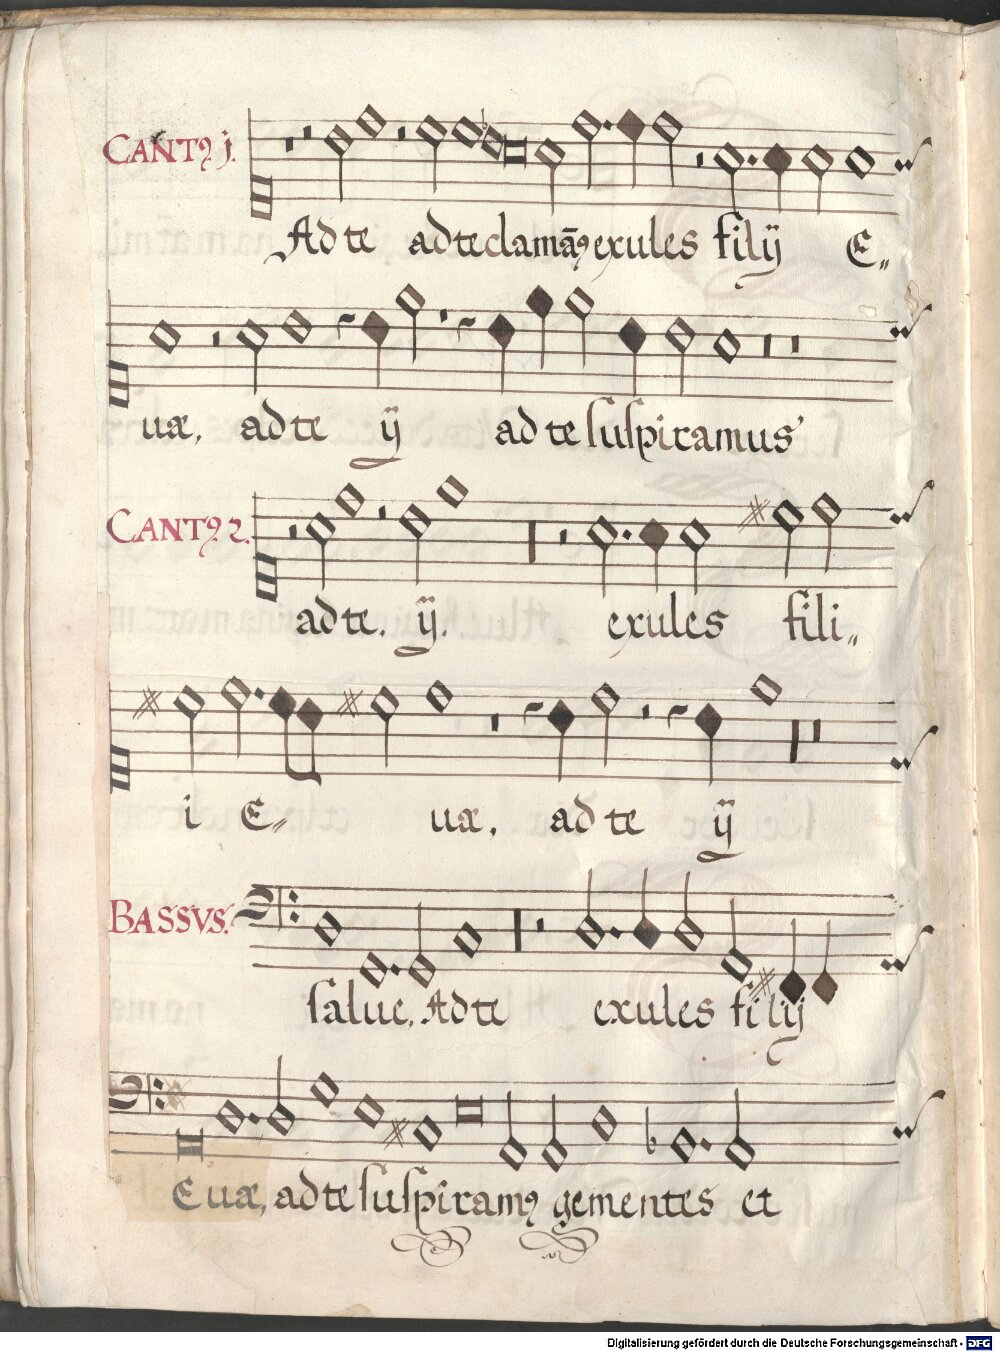 CANTꝰ j.
Ad te ad te clamāꝰ exules filij E„
uæ, ad te ij ad te suspiramus
CANTꝰ 2.
ad te. ij. exules fili„
i E„ uæ, ad te ij
BASSVS.
salue, Ad te exules filij
Euæ, ad te suspiramꝰ gementes et
Digitalisierung gefördert durch die Deutsche Forschungsgemeinschaft - DFG